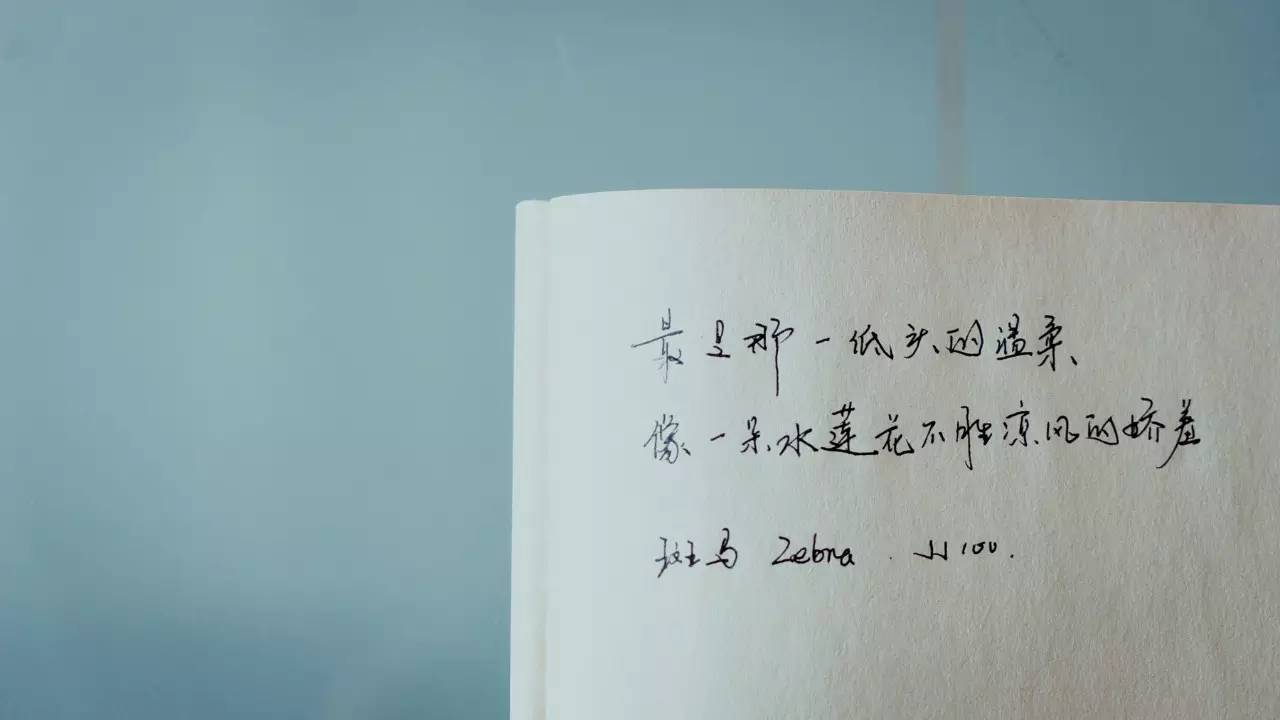 最是那一低头的温柔、
像一朵水莲花不胜凉风的娇羞
斑马 Zebra . JJ100.